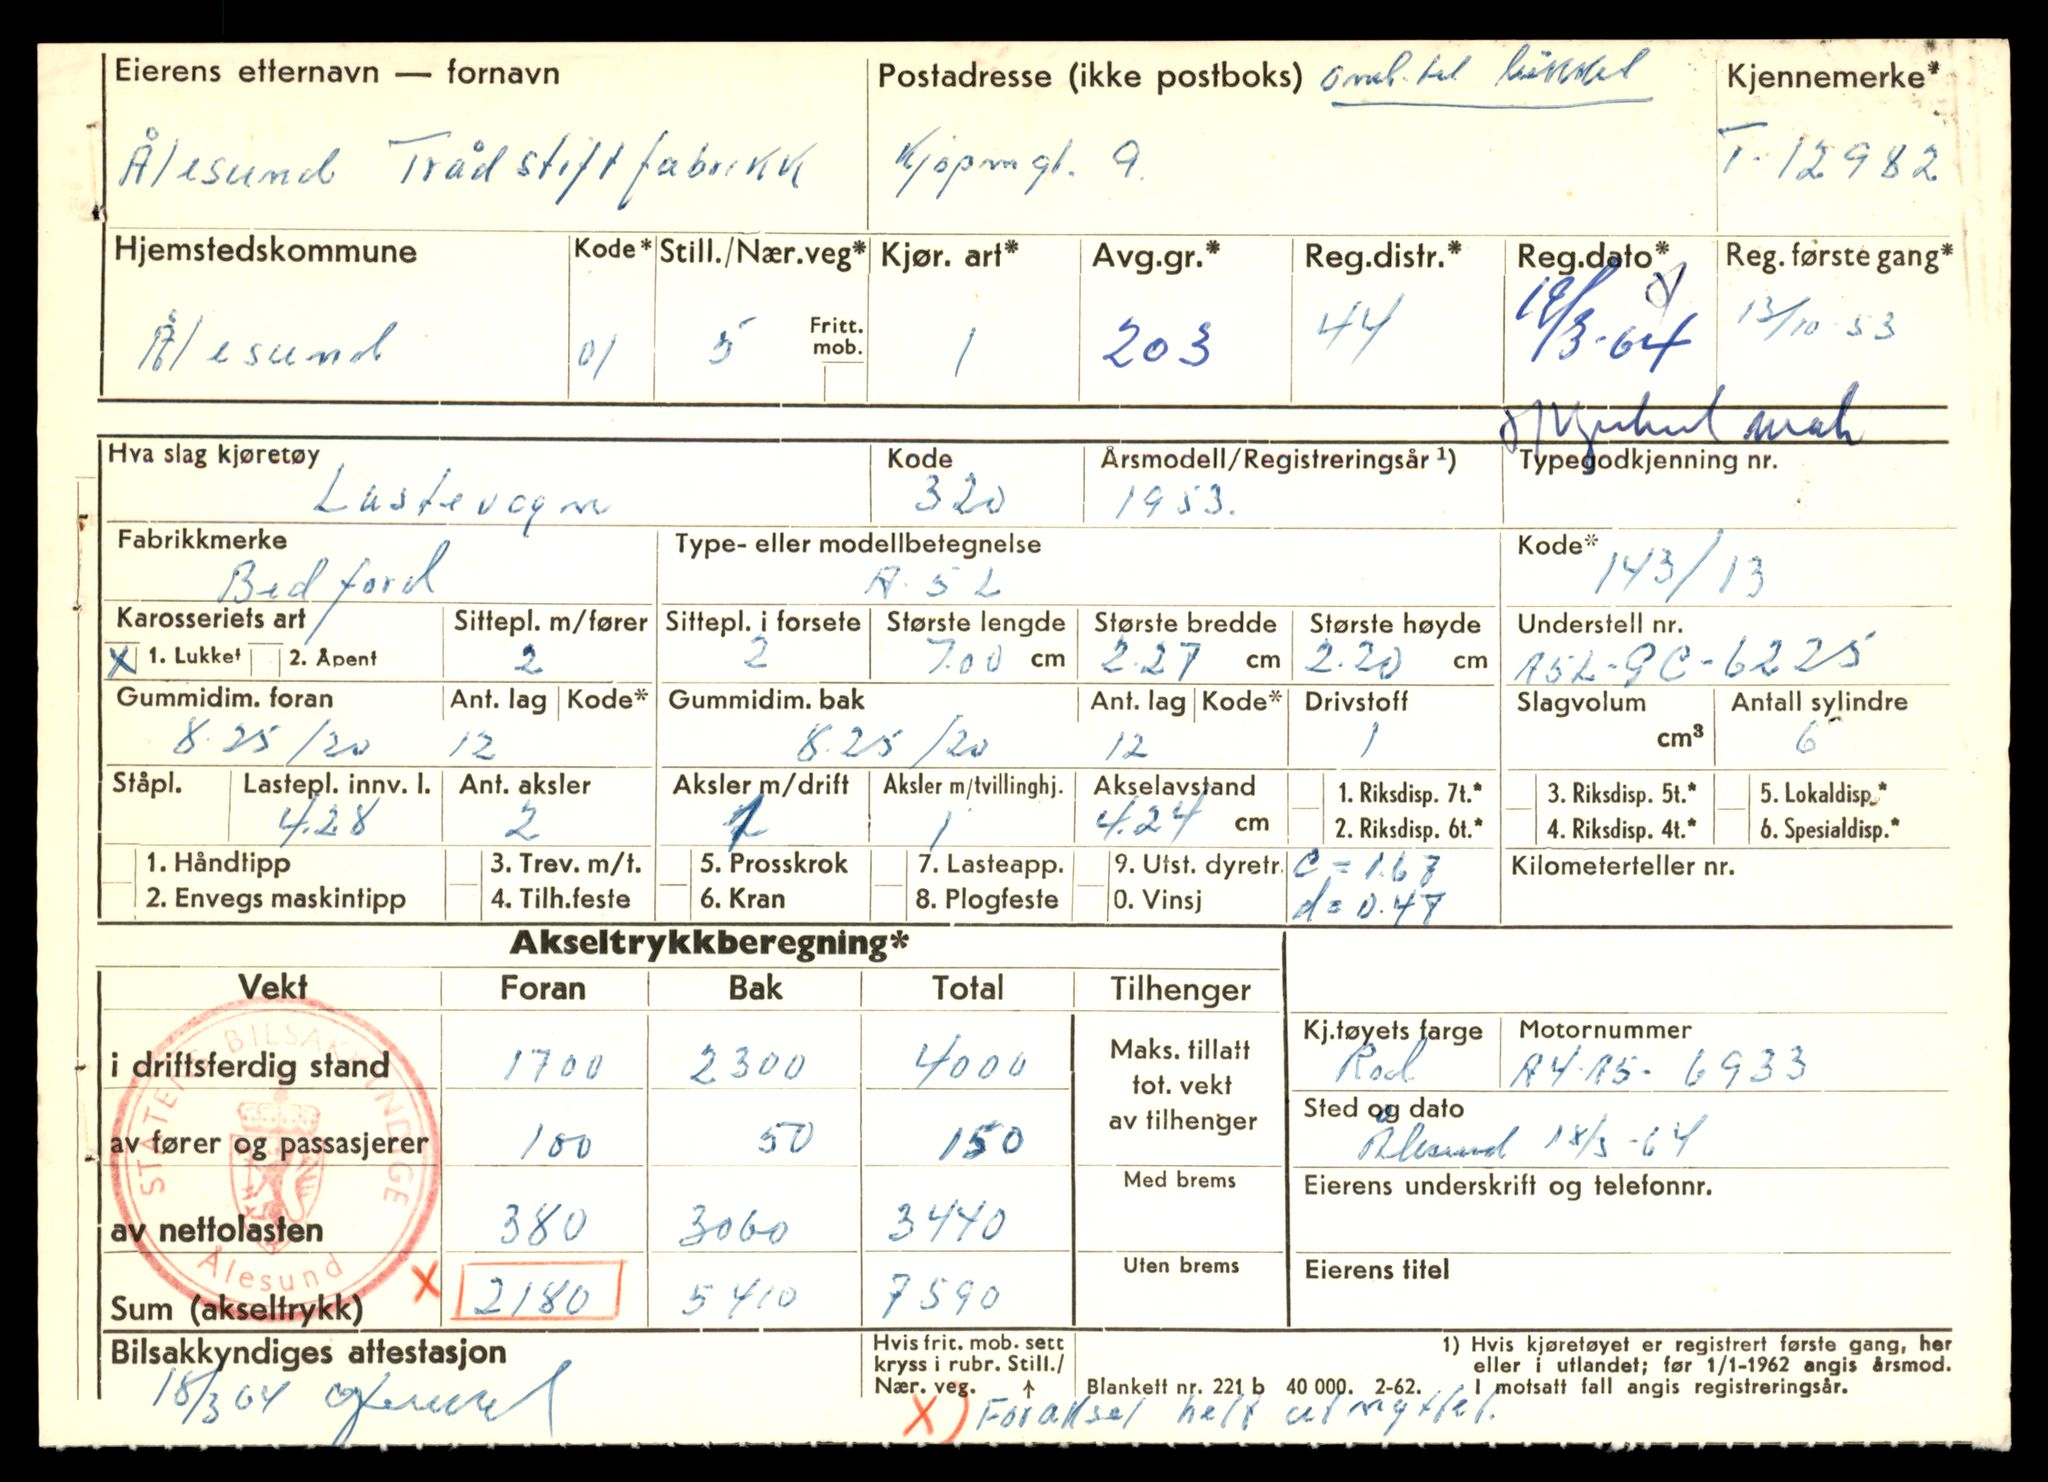 Eierens etternavn — fornavn
Postadresse (ikke postboks) omb. til lukket
Kjennemerke*
Ålesund Trådstiftfabrikk
Kjøpmgt. 9.
T-12982
Hjemstedskommune Kode* Still./Nær.veg* Kjør. art* Avg.gr.* Reg.distr.* Reg.dato* Reg. første gang*
Ålesund 01 5 Fritt. mob. 1 203 44 18/3-64 13/10-53
Hva slag kjøretøy Kode Årsmodell/Registreringsår ¹) Typegodkjenning nr.
Lastevogn 320 1953.
Fabrikkmerke Type- eller modellbetegnelse Kode*
Bedford A.5L 143/13
Karosseriets art Sittepl. m/fører Sittepl. i forsete Største lengde Største bredde Største høyde Understell nr.
X 1. Lukket 2. Åpent 2 2 7.00 cm 2.27 cm 2.20 cm A5L-9C-6225
Gummidim. foran Ant. lag Kode* Gummidim. bak Ant. lag Kode* Drivstoff Slagvolum Antall sylindre
8.25/20 12 8.25/20 12 1 cm³ 6
Ståpl. Lastepl. innv. l. Ant. aksler Aksler m/drift Aksler m/tvillinghj. Akselavstand 1. Riksdisp. 7t.* 3. Riksdisp. 5t.* 5. Lokaldisp.*
4.28 2 1 1 4.24 cm 2. Riksdisp. 6t.* 4. Riksdisp. 4t.* 6. Spesialdisp.*
1. Håndtipp 3. Trev. m/t. 5. Prosskrok 7. Lasteapp. 9. Utst. dyretr. C = 1.67 Kilometerteller nr.
2. Envegs maskintipp 4. Tilh.feste 6. Kran 8. Plogfeste 0. Vinsj d = 0.47
Akseltrykkberegning*
Vekt Foran Bak Total Tilhenger
i driftsferdig stand 1700 2300 4000
Maks. tillatt
tot. vekt
av tilhenger
Kj.tøyets farge Motornummer
Rød A4-A5-6933
av fører og passasjerer 100 50 150
Sted og dato
Ålesund 18/3-64
av nettolasten 380 3060 3440
Med brems
Eierens underskrift og telefonnr.
Sum (akseltrykk) X 2180 5410 7590
Uten brems
Eierens titel
STATENS BILSAKKYNDIGE
Ålesund
Bilsakkyndiges attestasjon
18/3 64
Hvis frit. mob. sett
kryss i rubr. Still./
Nær. veg. ↑
Blankett nr. 221 b 40 000. 2-62.
1) Hvis kjøretøyet er registrert første gang, her
eller i utlandet; før 1/1-1962 angis årsmod.
I motsatt fall angis registreringsår.
X) Foraksel helt utnyttet.